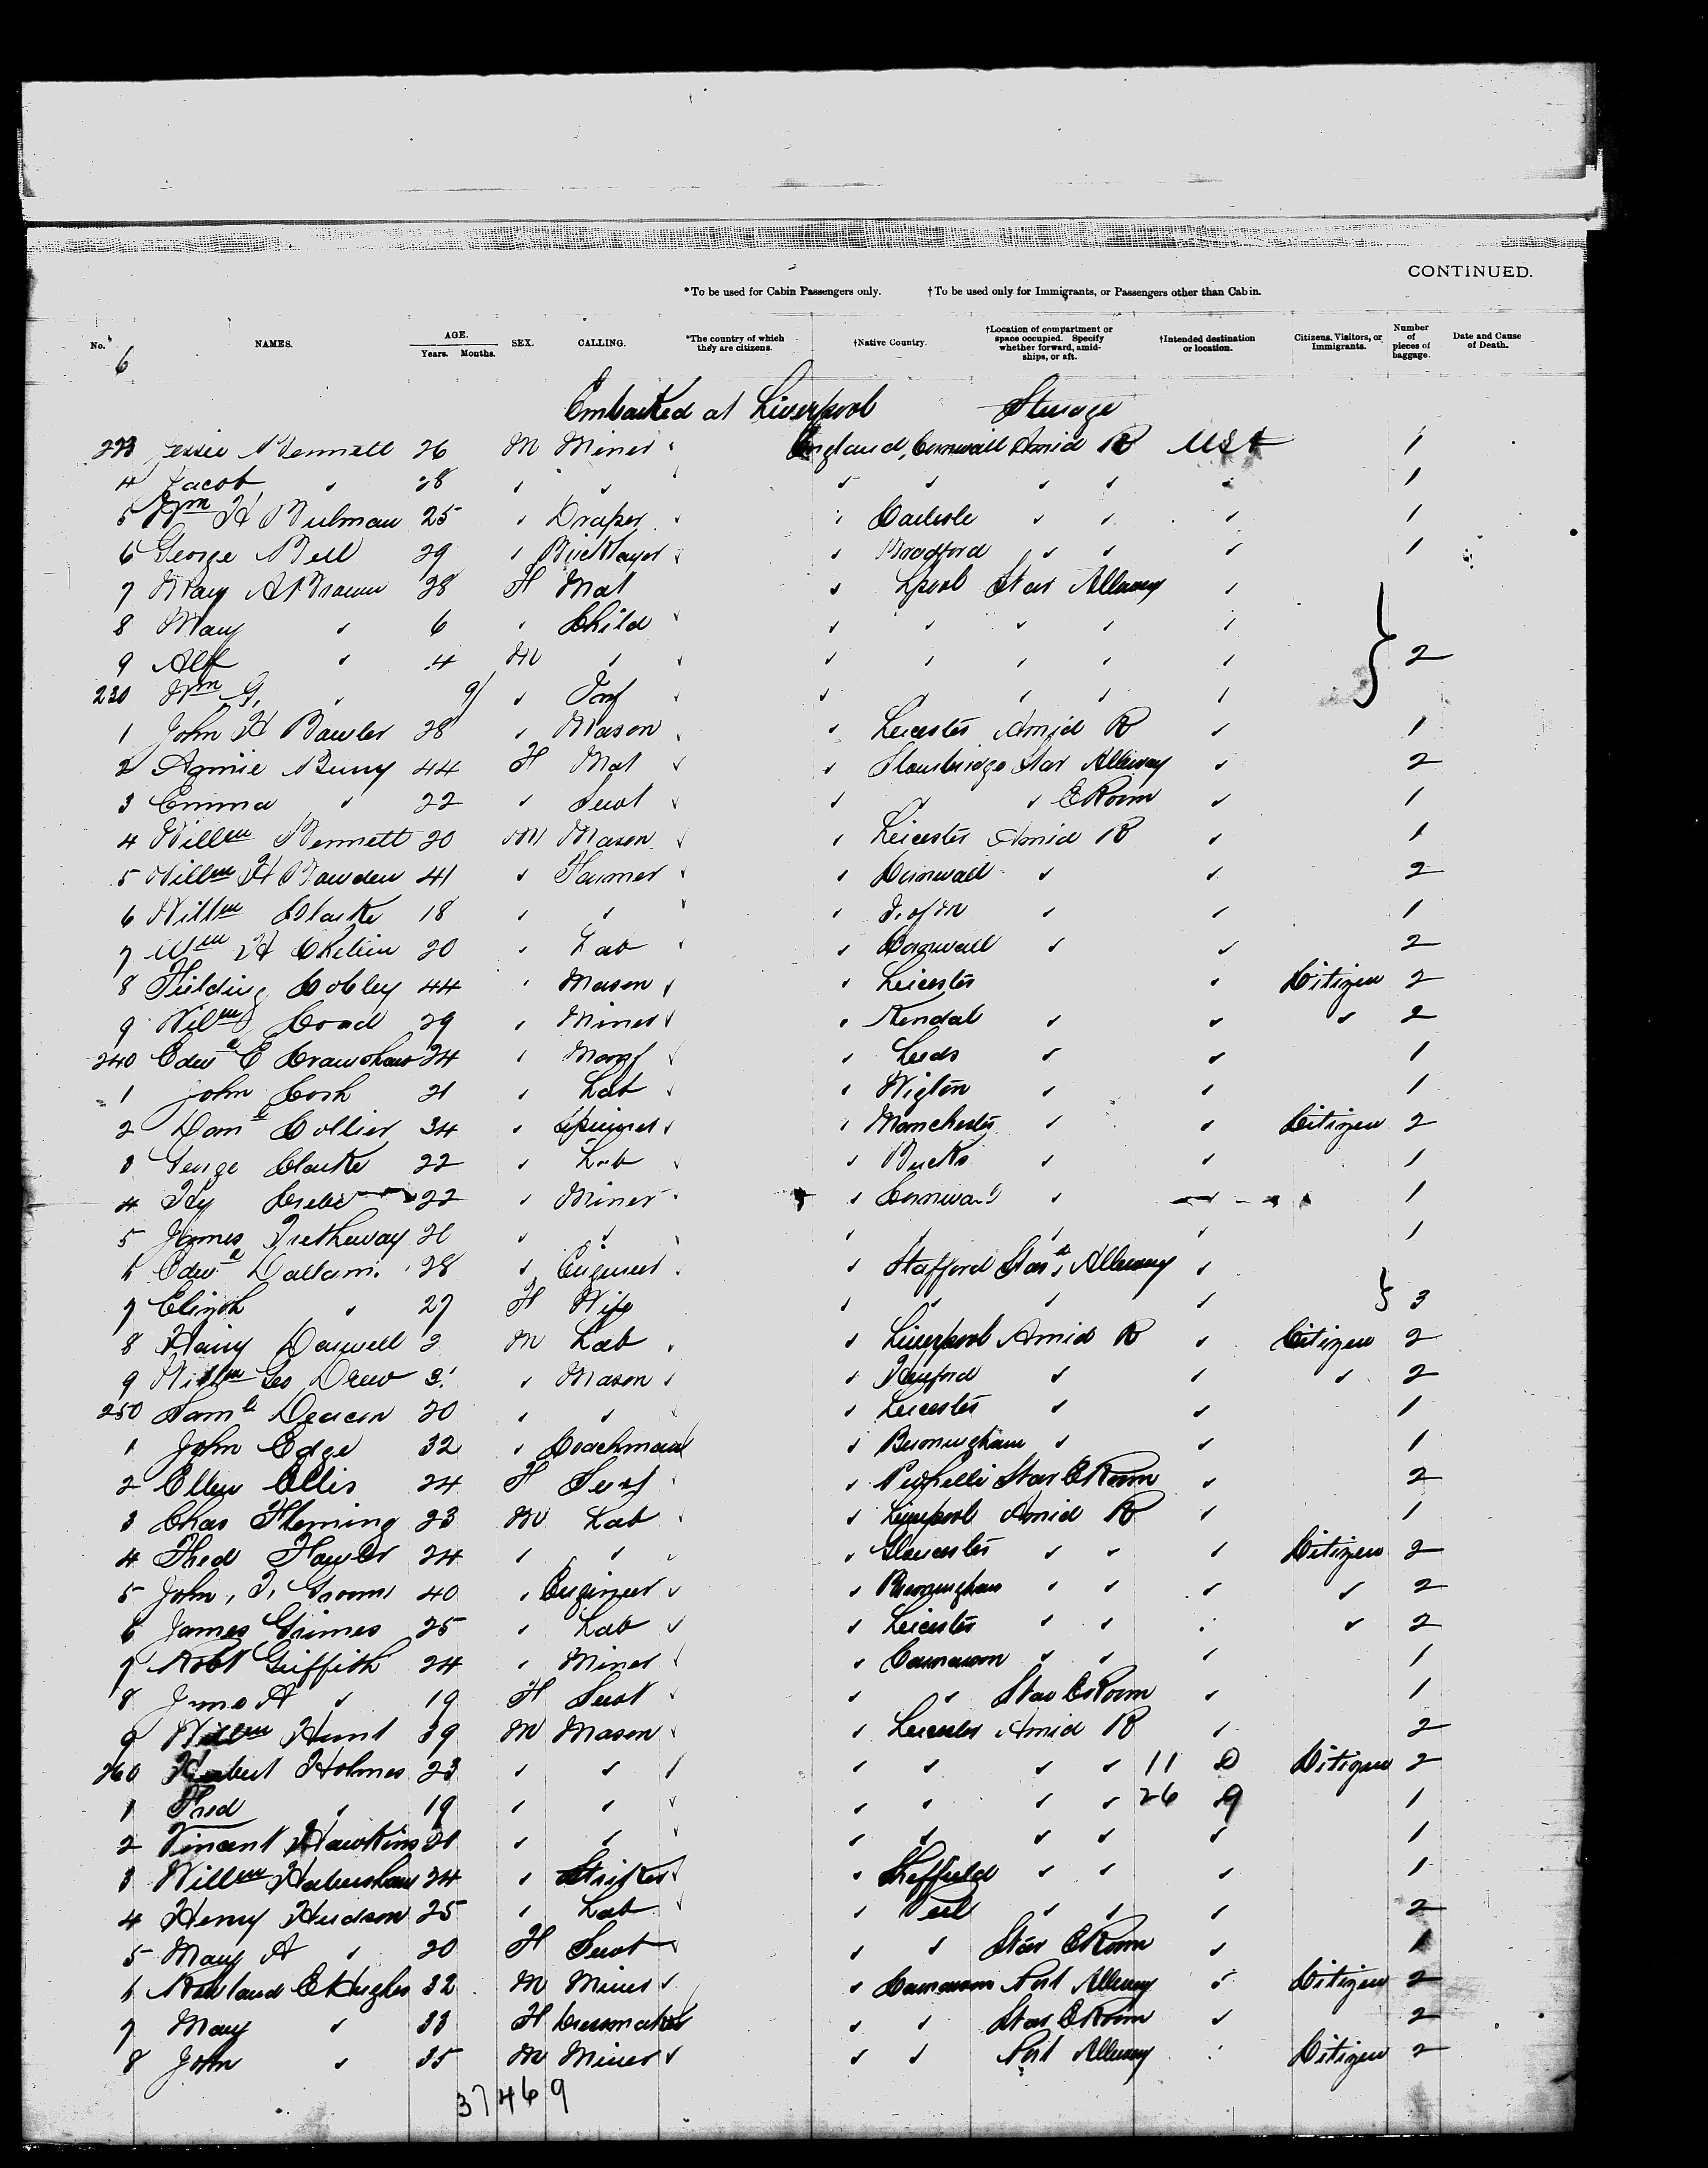 CONTINUED.
*To be used for Cabin Passengers only. †To be used only for Immigrants, or Passengers other than Cabin.
No. NAMES. AGE. Years. Months. SEX. CALLING. *The country of which they are citizens. †Native Country. †Location of compartment or space occupied. Specify whether forward, amidships, or aft. †Intended destination or location. Citizens, Visitors, or Immigrants. Number of pieces of baggage. Date and Cause of Death.
6
Embarked at Liverpool Steerage
223 Jessie Bennett 26 M Miner England, Cornwall Amid R USA 1
4 Jacob " 28 " " " " " " " 1
5 Wm H Bulman 25 " Draper " Carlisle " " " 1
6 George Bell 29 " Bricklayer " Bradford " " " 1
7 Mary A Brown 28 F Mat " Lpool Star Alleway "
8 Mary " 6 " Child " " " " "
9 Alf " 4 M " " " " " " 2
230 Wm G. " 9 " Inf " " " " "
1 John H Bowler 28 " Mason " Leicester Amid R " 1
2 Annie Berry 44 F Mat " Stourbridge Star Alleway " 2
3 Emma " 22 " Servt " " " E Room " 1
4 Willm Bennett 20 M Mason " Leicester Amid R " 1
5 Willm H Bawden 41 " Farmer " Cornwall " " 2
6 Willm Clarke 18 " " " I. of M " " 1
7 Wm H 20 " Lab " Cornwall " " 2
8 Fielding Cobley 44 " Mason " Leicester " Citizen 2
9 Willm Coad 29 " Miner " Kendal " " " 2
240 Edwd E Crawshaw 24 " Manf " Leeds " " 1
1 John Cosh 21 " Lab " Wigton " " 1
2 Danl Collier 34 " Spinner " Manchester " " Citizen 2
3 George Clarke 22 " Lab " Bucks " " 1
4 Hy 22 " Miner " Cornwall " " 1
5 James Tretheway 21 " " " " " " 1
6 Edwd Dallam 28 " Engineer " Stafford Star Alleway "
7 Elizth " 27 F Wife " " " " 3
8 Harry Daswell M Lab " Liverpool Amid R " Citizen 2
9 Willm Geo Drew " Mason " Hereford " " " 2
250 Saml Deacon 20 " " " Leicester " " 1
1 John Edge 32 " Coachman " Birmingham " " 1
2 Ellen Ellis 24 F Serv " Pwllheli Star E Room " 2
3 Chas Fleming 23 M Lab " Liverpool Amid R " 1
4 Fred Fowler 24 " " " Gloucester " " " Citizen 2
5 John, T, Groom 40 " Engineer " Birmingham " " " " 2
6 James Grimes 25 " Lab " Leicester " " " " 2
7 Robt Griffith 24 " Miner " Carnarvon " " " 1
8 Jane A " 19 F Servt " " Star E Room " 1
9 Willm Hunt 39 M Mason " Leicester Amid R " 2
260 Herbert Holmes 23 " " " " " " 11 0 Citizen 2
1 Fred " 19 " " " " " " 26 9 1
2 Vincent Hawkins 21 " " " " " " " 1
3 Willm Habershaw 24 " Striker " Sheffield " " " 1
4 Henry Hudson 25 " Lab " " " " 2
5 Mary A " 20 F Servt " " Star E Room " 1
6 Rowland E Hughes 32 M Miner " Carnarvon Port Alleway " Citizen 2
7 Mary " 33 F Dressmaker " " Star E Room " 2
8 John " 35 M Miner " " Port Alleway " Citizen 2
37469